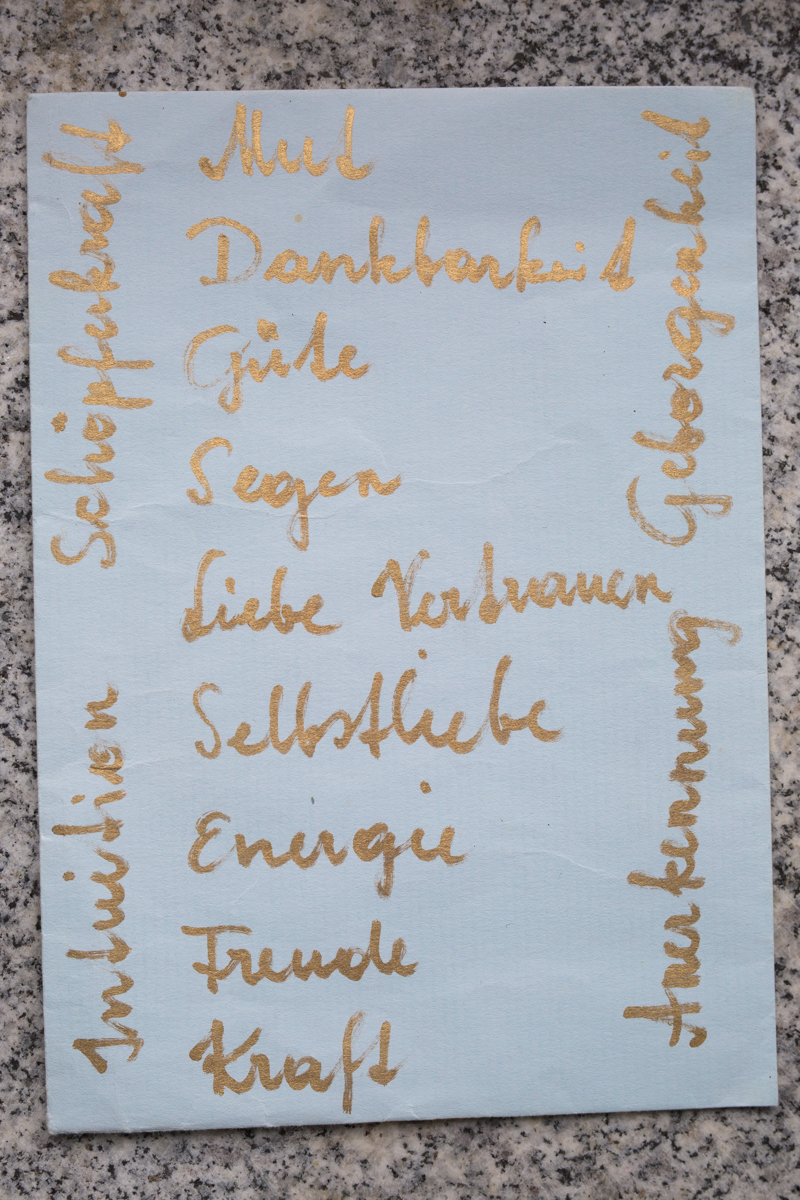 Mut
Dankbarkeit
Güte
Segen
Liebe Vertrauen
Selbstliebe
Energie
Freude
Kraft
Intuition Schöpferkraft
Anerkennung Geborgenheit